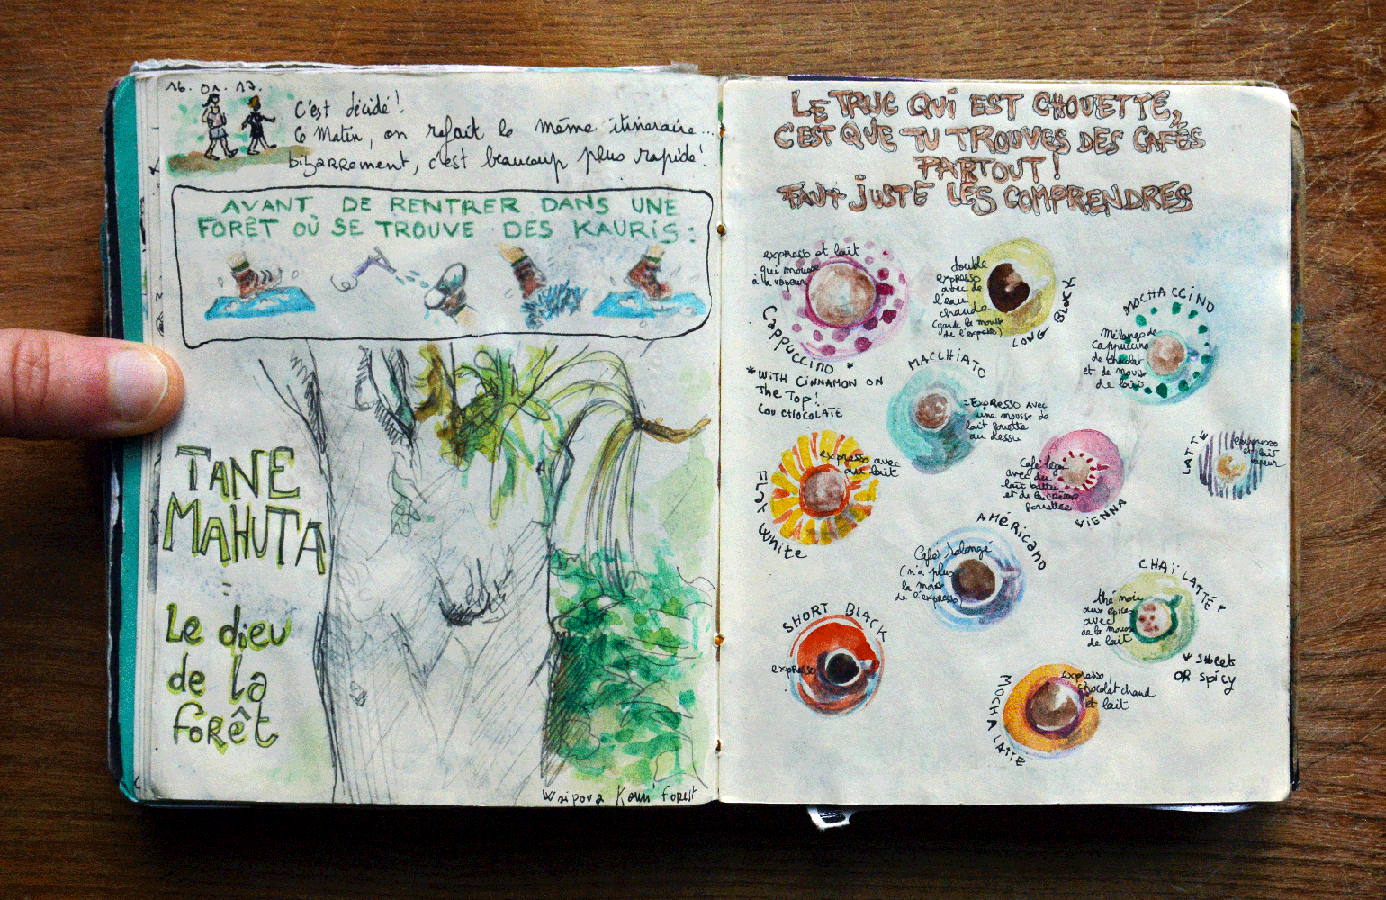 16.01.17.
C'est décidé!
Ce Matin, on refait le même itineraire...
bizarrement, c'est beaucoup plus rapide!
AVANT DE RENTRER DANS UNE
FORÊT OÙ SE TROUVE DES KAURIS:
TANE
MAHUTA
=
Le dieu
de la
forêt
Waipora Kauri Forest
LE TRUC QUI EST CHOUETTE,
C'EST QUE TU TROUVES DES CAFÉS
PARTOUT!
FAUT JUSTE LES COMPRENDRES
expresso et lait
qui mousse
à la vapeur
CAPPUCCINO *
* WITH CINNAMON ON
The Top!
OU CHOCOLATE
double
expresso
avec de
l'eau
chaude
(garde la mousse
de l'expresso)
LONG BLACK
MOCHACCINO
Mélange de
Cappuccino
de chocolat
et de mousse
de lait
MACCHIATO
= EXPRESSO AVEC
une mousse de
lait fouetté
au dessus
expresso avec
du lait
FLAT White
Café léger
avec du
lait battu
et de la crème
fouettée
VIENNA
LATTE
expresso
et lait
vapeur
AMÉRICANO
Café allongé
(n'a plus
la mousse
de l'expresso)
CHAÏ LATTÉ *
thé noir
aux épices
avec
de la mousse
de lait
* Sweet
OR Spicy
SHORT BLACK
expresso
MOCHA LATTE
expresso,
chocolat chaud
et lait